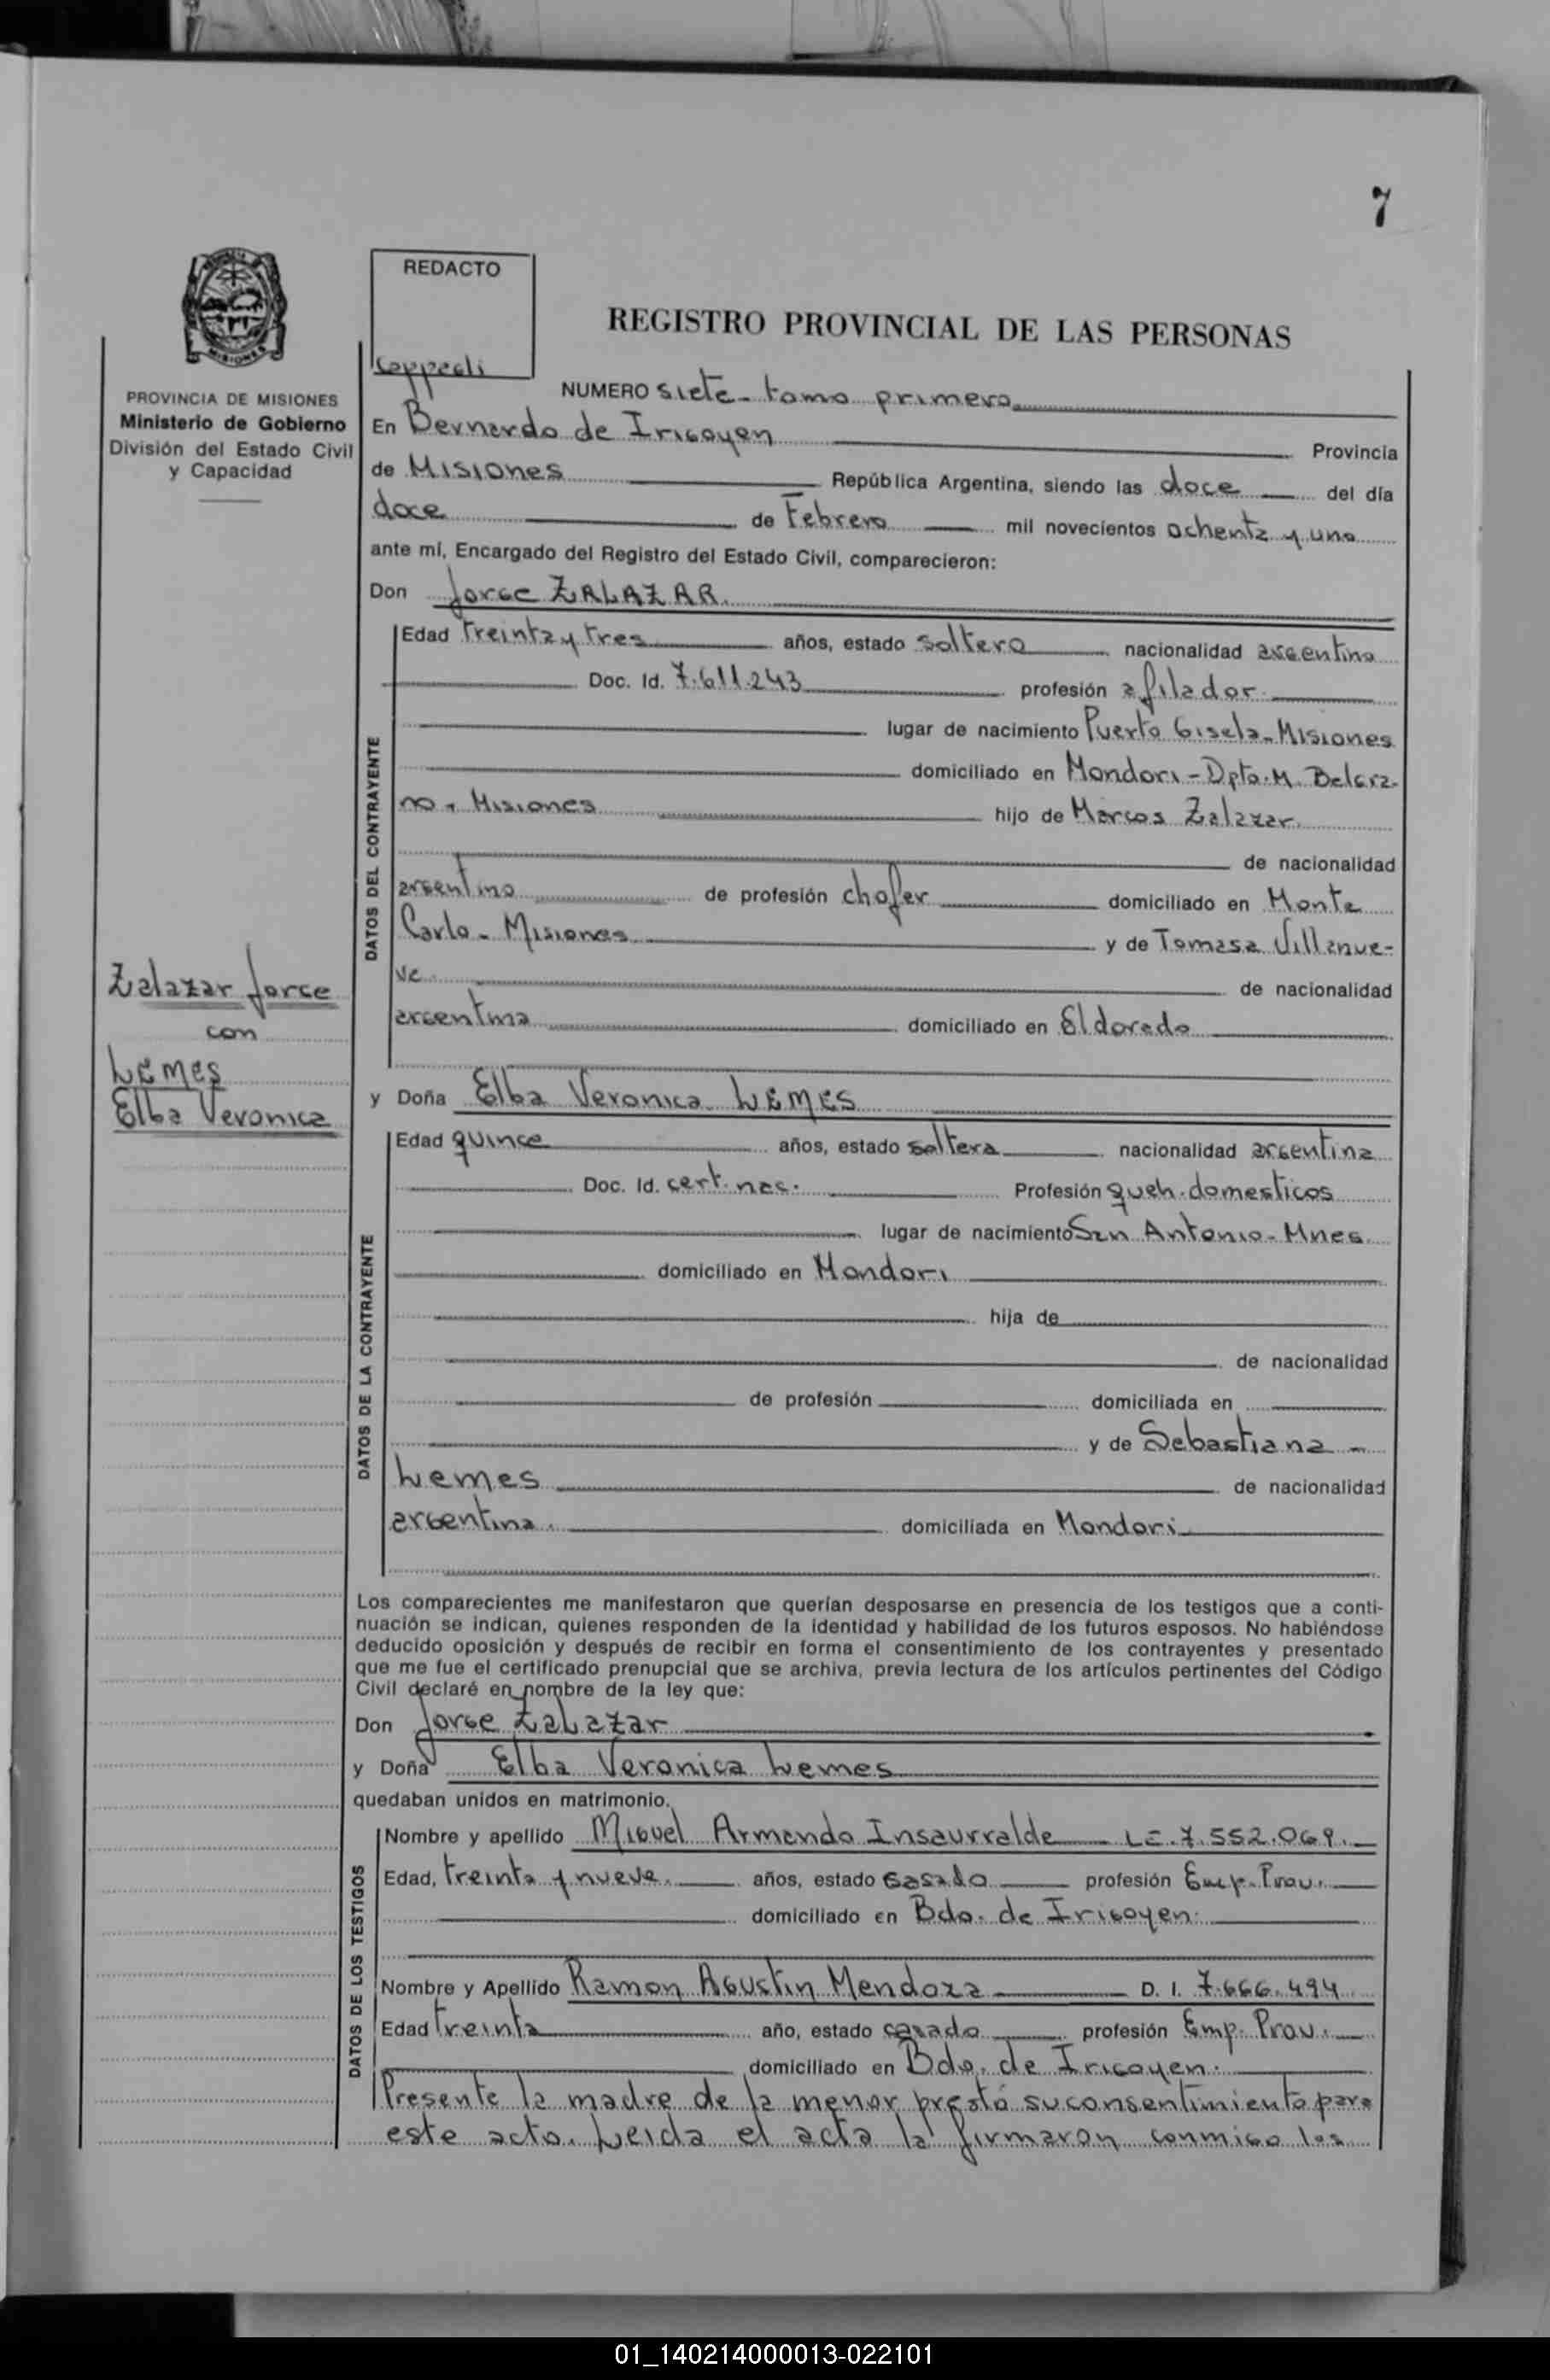 7
REDACTO
MISIONES
REGISTRO PROVINCIAL DE LAS PERSONAS
PROVINCIA DE MISIONES
Ministerio de Gobierno
División del Estado Civil
y Capacidad
NUMERO siete - tomo primero
En Bernardo de Irigoyen Provincia
de Misiones República Argentina, siendo las doce del día
doce de Febrero mil novecientos ochenta y uno
ante mí, Encargado del Registro del Estado Civil, comparecieron:
Don Jorge ZALAZAR.
DATOS DEL CONTRAYENTE
Edad treinta y tres años, estado soltero nacionalidad argentino
Doc. Id. 7.611.243 profesión afilador.
lugar de nacimiento Puerto Gisela - Misiones
domiciliado en Mondori - Dpto. M. Belgra-
no - Misiones hijo de Marcos Zalazar.
de nacionalidad
argentino de profesión chofer domiciliado en Monte
Carlo - Misiones y de Tomasa Villanue-
va. de nacionalidad
argentina domiciliado en Eldorado
Zalazar Jorge
con
LEMES
Elba Veronica
y Doña Elba Veronica LEMES
DATOS DE LA CONTRAYENTE
Edad quince años, estado soltera nacionalidad argentina
Doc. Id. cert. nac. Profesión queh. domesticos
lugar de nacimiento San Antonio - Mnes.
domiciliado en Mondori
hija de
de nacionalidad
de profesión domiciliada en
y de Sebastiana -
Lemes de nacionalidad
argentina. domiciliada en Mondori
Los comparecientes me manifestaron que querían desposarse en presencia de los testigos que a conti-
nuación se indican, quienes responden de la identidad y habilidad de los futuros esposos. No habiéndose
deducido oposición y después de recibir en forma el consentimiento de los contrayentes y presentado
que me fue el certificado prenupcial que se archiva, previa lectura de los artículos pertinentes del Código
Civil declaré en nombre de la ley que:
Don Jorge Zalazar
y Doña Elba Veronica Lemes
quedaban unidos en matrimonio.
DATOS DE LOS TESTIGOS
Nombre y apellido Miguel Armando Insaurralde LE. 7.552.069.
Edad, treinta y nueve. años, estado casado profesión Emp. Prov.
domiciliado en Bdo. de Irigoyen.
Nombre y Apellido Ramon Agustin Mendoza D. I. 7.666.494
Edad treinta año, estado casado profesión Emp. Prov.
domiciliado en Bdo. de Irigoyen.
Presente la madre de la menor prestó su consentimiento para
este acto. Leida el acta la firmaron conmigo los
01_140214000013-022101